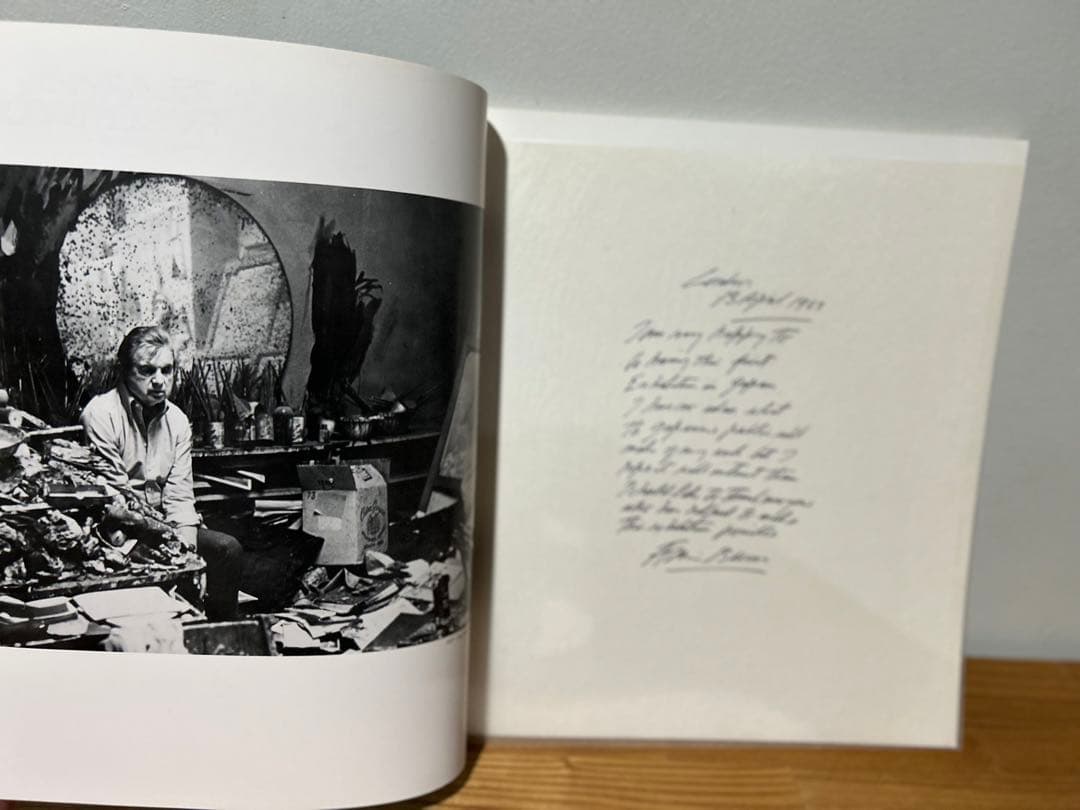 London
13 April 1983
I am very happy to
be having this first
Exhibition in Japan
I have no idea what
The Japanese public will
make of my work but I
hope it will interest them
I would like to thank everyone
who has helped to make
the exhibition possible
Francis Bacon